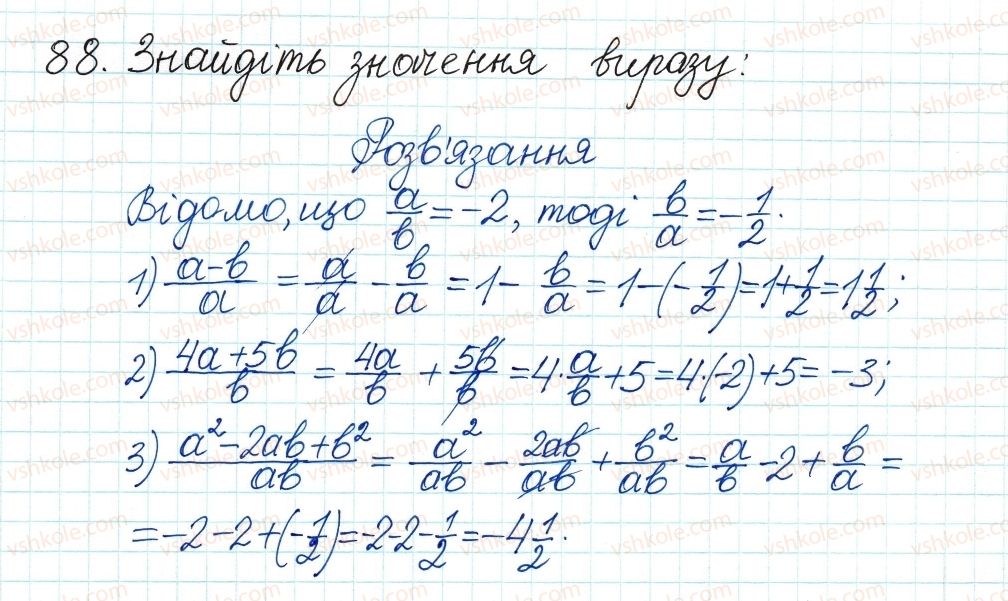 88. Знайдіть значення виразу:
Розв'язання
Відомо, що a/b = -2, тоді b/a = -1/2.
1) (a-b)/a = a/a - b/a = 1 - b/a = 1-(-1/2) = 1+1/2 = 1 1/2;
2) (4a+5b)/b = 4a/b + 5b/b = 4·a/b + 5 = 4·(-2)+5 = -3;
3) (a²-2ab+b²)/ab = a²/ab - 2ab/ab + b²/ab = a/b - 2 + b/a =
= -2-2+(-1/2) = -2-2-1/2 = -4 1/2.